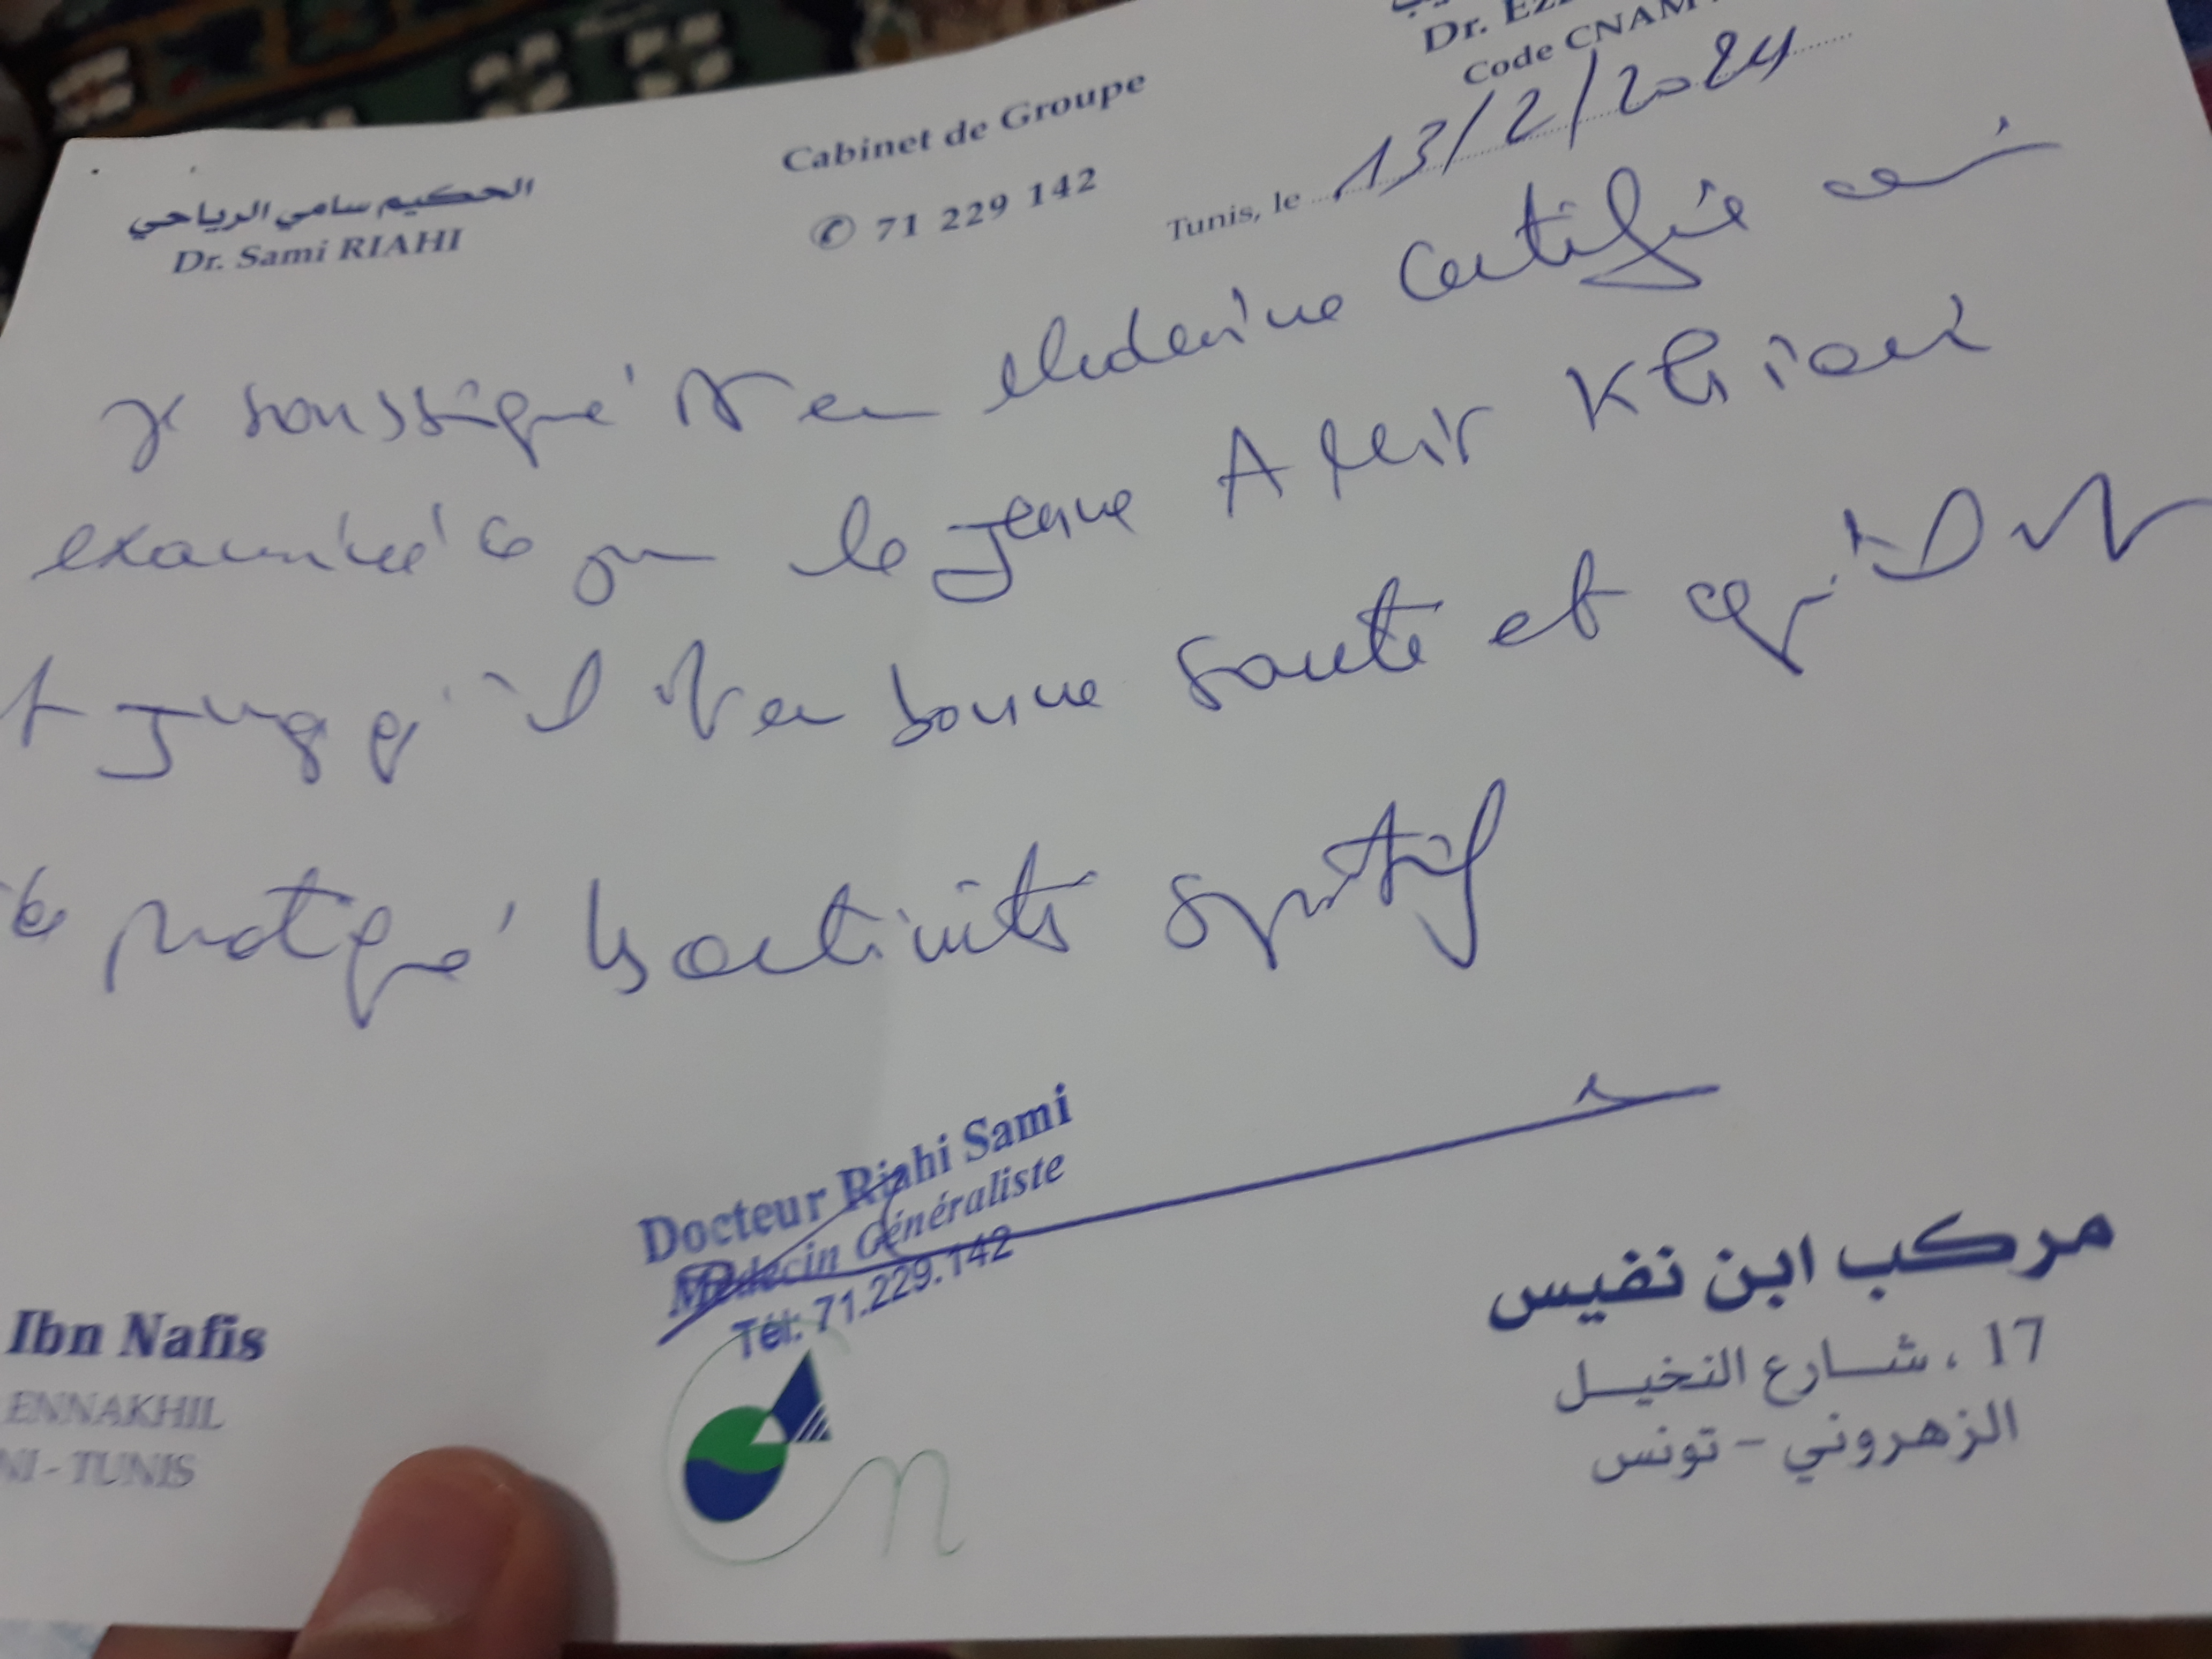 الحكيم سامي الرياحي
Dr. Sami RIAHI
Cabinet de Groupe
✆ 71 229 142
Dr. Ez
Code CNAM
Tunis, le 13/2/2024
Je soussigné Dr en Médecine Certifie avoir
examiné ce jour le jeune Amir
et juge qu'il est en bonne santé et qu'il
pratiqué les activités sportif
Docteur Riahi Sami
Médecin Généraliste
Tél: 71.229.142
Ibn Nafis
ENNAKHIL
NI - TUNIS
مركب ابن نفيس
17 ، شارع النخيل
الزهروني - تونس